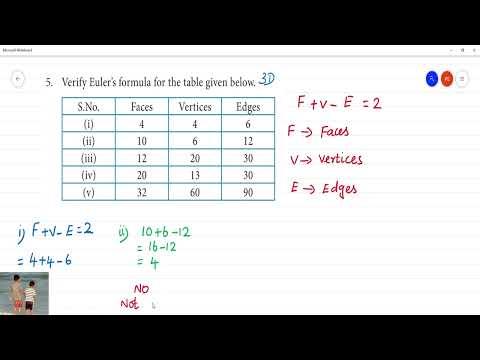 Microsoft Whiteboard
5. Verify Euler's formula for the table given below. 3D
S.No. Faces Vertices Edges
(i) 4 4 6
(ii) 10 6 12
(iii) 12 20 30
(iv) 20 13 30
(v) 32 60 90
F + V - E = 2
F → Faces
V → Vertices
E → Edges
i) F + V - E = 2
= 4 + 4 - 6
ii) 10 + 6 - 12
= 16 - 12
= 4
NO
Not